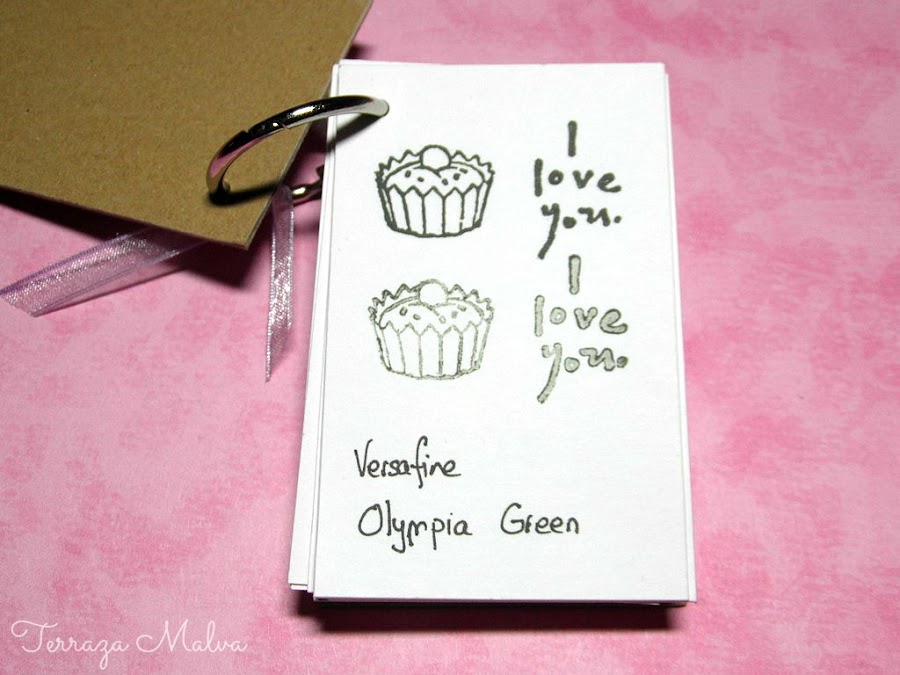 I
love
you.
I
love
you.
Versafine
Olympia Green
Terraza Malva